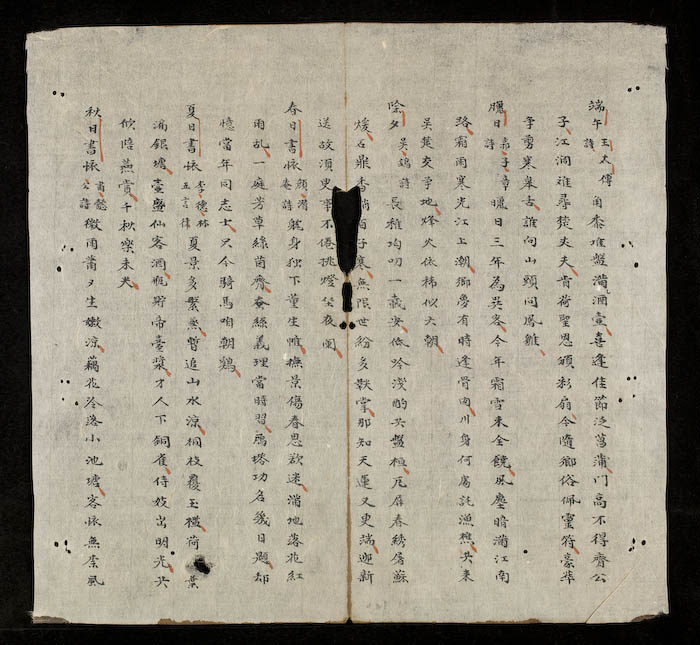 端午 王太傅詩 角黍堆盤滿酒壺喜逢佳節泛菖蒲門高不得齊公
子江闊难尋楚大夫肯荷聖恩頒彩扇今隨鄉俗佩靈符豪華
爭勇寒古誰向山頭問鳳雛
臘日 詩 臘日三年為吳客今年霜雪未全饒風塵暗滿江南
路霜雨寒光江上潮鄉夢有時逢骨肉身何處託漁樵只来
吳楚交爭地烽火依稀似六朝
除夕 吳詩 長稚均叨一歲安低吟淺酌共盤桓春綉屠蘇
煖石鼎香銷栢子寒無限世紛多掌那知天運又更端迎新
送故須更事不倦挑燈坐夜闌
春日書懷 顏潛菴詩 身独下董生帷撫景傷春思欲迷滿地落花紅
雨乱一庭芳草綠茵齊蚕絲義理當時習鴈塔功名幾日題却
憶當年同志士只今騎馬咱朝鷄
夏日書懷 李林五言律 夏景多繁蒸暫追山水涼桐枝覆玉檻荷葉
滿銀塘壺盤仙客酒瓶貯帝臺漿才人下銅雀侍妓出明光共
欣陪燕賞千秋樂未央
秋日書懷 肅懿公詩 微雨蕭々生嫩涼藕花泠落小池塘客懷無奈風